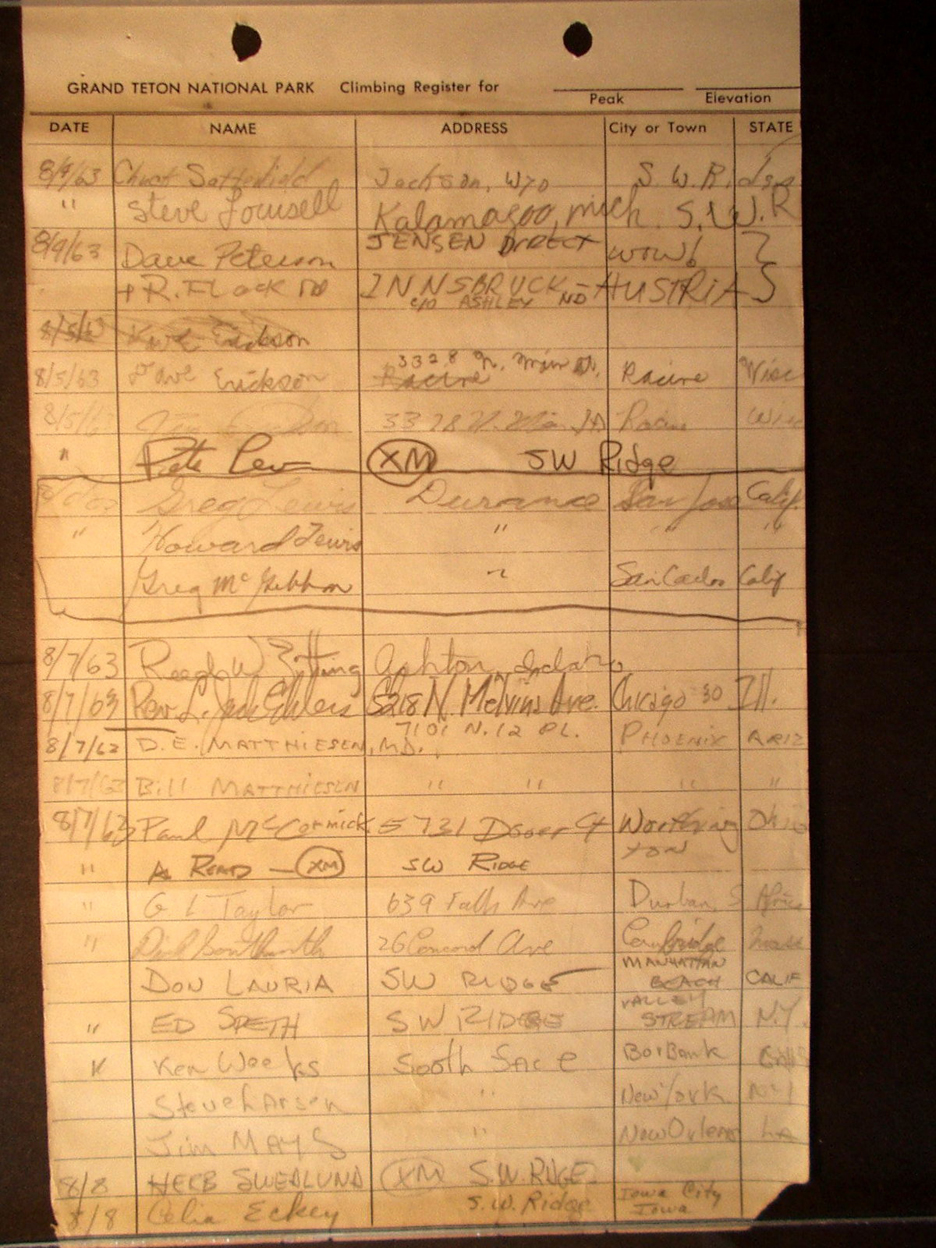 GRAND TETON NATIONAL PARK Climbing Register for
Peak Elevation
DATE NAME ADDRESS City or Town STATE
8/9/63 Chuck Satterfield Jackson, Wyo S. W. R.
" Steve Kalamazoo, mich. S.W.R
8/9/63 Dave Peterson JENSEN DIRECT WOW!
+ R. INNSBRUCK - AUSTRIA
c/o ASHLEY ND
8/5/63 Erickson
8/5/63 Dave Erickson Racine 3328 N. Main St. Racine Wisc
8/5/63 3328 N. Main St Racine Wisc
" Pete Lev XM SW Ridge
Greg Lewis Durance San Jose Calif.
" Howard Lewis " " "
Greg McGibbon " San Carlos Calif
8/7/63 Reed W Ashton, Idaho
8/7/63 Rev L. Jack Ehlers 5218 N. Melvina Ave. Chicago 30 Ill.
8/7/63 D.E. MATTHIESEN, M.D. 7101 N. 12 PL. PHOENIX ARIZ
8/7/63 Bill MATTHIESEN " " " "
8/7/63 Paul McCormick 5731 Dover Ct Worthington Ohio
" A READ - XM SW RIDGE
" G L Taylor 639 Falls Ave Durban, S Africa
" 26 Concord Ave Cambridge Mass
DON LAURIA SW RIDGE MANHATTAN BEACH CALIF
" ED SPETH SW RIDGE VALLEY STREAM N.Y.
" Ken Weeks South Face Burbank
Steve Larsen " New York N.Y
Jim MAYS " New Orleans LA
8/8 HERB SWEDLUND XM S.W. RIDGE
8/8 Celia Eckey S.W. Ridge Iowa City Iowa